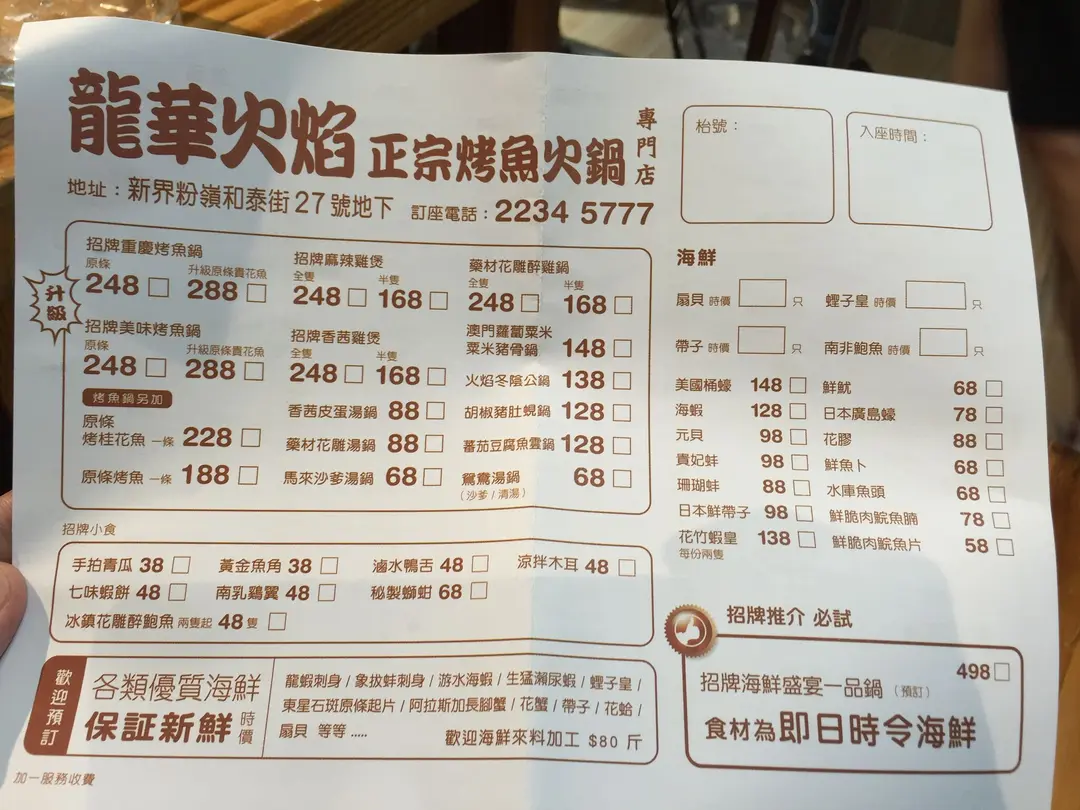 龍華火焰 正宗烤魚火鍋 專門店
地址：新界粉嶺和泰街27號地下 訂座電話：2234 5777
枱號：
入座時間：
升級
招牌重慶烤魚鍋
原條 248 升級原條貴花魚 288
招牌美味烤魚鍋
原條 248 升級原條貴花魚 288
烤魚鍋另加
原條
烤桂花魚 一條 228
原條烤魚 一條 188
招牌麻辣雞煲
全隻 248 半隻 168
招牌香茜雞煲
全隻 248 半隻 168
香茜皮蛋湯鍋 88
藥材花雕湯鍋 88
馬來沙爹湯鍋 68
藥材花雕醉雞鍋
全隻 248 半隻 168
澳門蘿蔔粟米
粟米豬骨鍋 148
火焰冬陰公鍋 138
胡椒豬肚蜆鍋 128
蕃茄豆腐魚雲鍋 128
鴛鴦湯鍋 68
（沙爹 / 清湯）
海鮮
扇貝 時價 只
蟶子皇 時價 只
帶子 時價 只
南非鮑魚 時價 只
美國桶蠔 148
海蝦 128
元貝 98
貴妃蚌 98
珊瑚蚌 88
日本鮮帶子 98
花竹蝦皇 138
每份兩隻
鮮魷 68
日本廣島蠔 78
花膠 88
鮮魚卜 68
水庫魚頭 68
鮮脆肉鯇魚腩 78
鮮脆肉鯇魚片 58
招牌小食
手拍青瓜 38 黃金魚角 38 滷水鴨舌 48 涼拌木耳 48
七味蝦餅 48 南乳鷄翼 48 秘製螄蚶 68
冰鎮花雕醉鮑魚 兩隻起 48 隻
歡迎預訂
各類優質海鮮
保証新鮮 時價
龍蝦刺身 / 象拔蚌刺身 / 游水海蝦 / 生猛瀨尿蝦 / 蟶子皇 /
東星石斑原條起片 / 阿拉斯加長腳蟹 / 花蟹 / 帶子 / 花蛤 /
扇貝 等等 ..... 歡迎海鮮來料加工 $80 斤
招牌推介 必試
498
招牌海鮮盛宴一品鍋（預訂）
食材為即日時令海鮮
加一服務收費